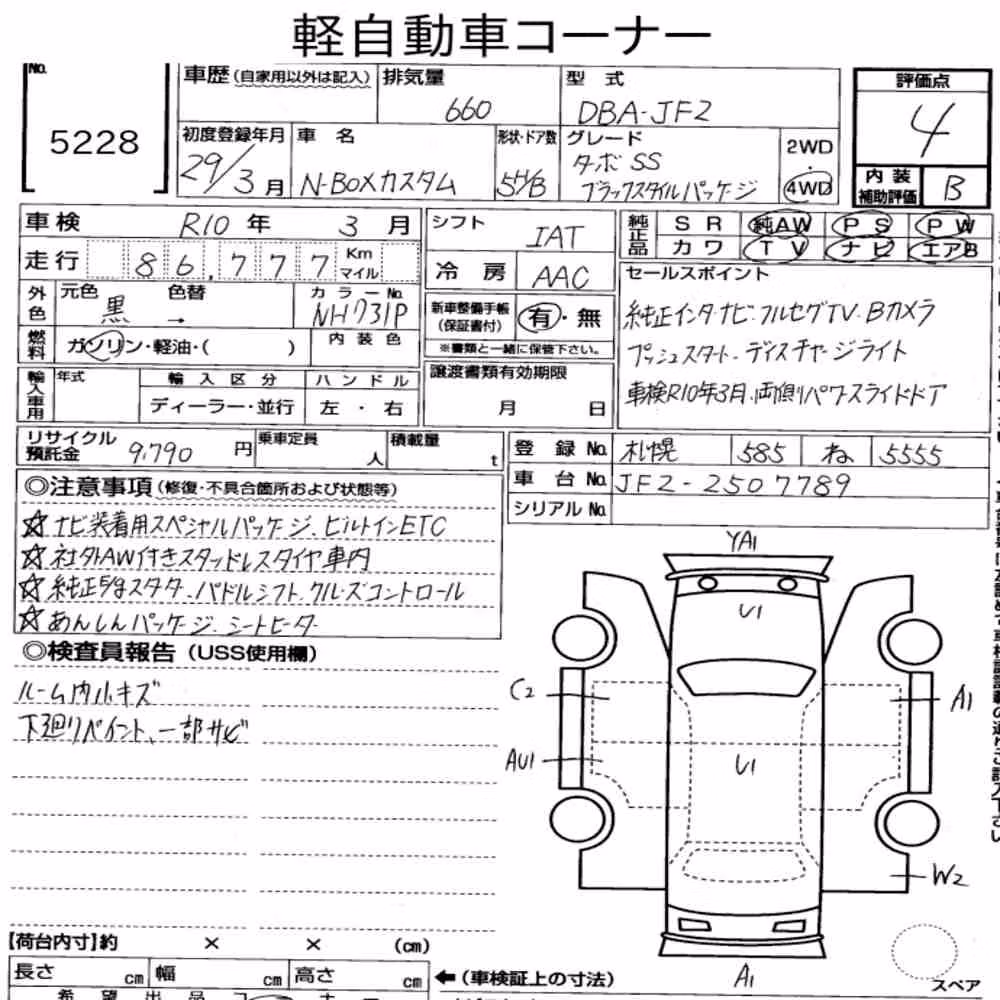 軽自動車コーナー
No. 5228
車歴(自家用以外は記入) 排気量 660 型式 DBA-JF2
評価点 4
初度登録年月 29/3月 車名 N-BOXカスタム 形状・ドア数 5H/B グレード ターボSS ブラックスタイルパッケージ 2WD・4WD
内装補助評価 B
車検 R10年 3月
走行 86,777 Km マイル
外色 元色 黒 色替 → カラーNo. NH731P
燃料 ガソリン・軽油・( ) 内装色
輸入車用 年式 輸入区分 ハンドル
ディーラー・並行 左・右
シフト IAT
冷房 AAC
新車整備手帳(保証書付) 有・無
※書類と一緒に保管下さい。
譲渡書類有効期限
月 日
純正品 SR 純AW PS PW
カワ TV ナビ エアB
セールスポイント
純正インタナビ.フルセグTV.Bカメラ
プッシュスタート.ディスチャージライト
車検R10年3月.両側パワースライドドア
リサイクル預託金 9,790円 乗車定員 人 積載量 t
登録No. 札幌 585 ね 5555
車台No. JF2-2507789
シリアルNo.
◎注意事項(修復・不具合箇所および状態等)
☆ナビ装着用スペシャルパッケージ.ビルトインETC
☆社外AW付きスタッドレスタイヤ車内
☆純正Eｇスタータ.パドルシフト.クルーズコントロール
☆あんしんパッケージ.シートヒーター
◎検査員報告(USS使用欄)
ルーム内小キズ
下廻りペイント、一部サビ
YA1
U1
C2
A1
AU1
U1
W2
A1
スペア
【荷台内寸】約 × × (cm)
長さ cm 幅 cm 高さ cm
←(車検証上の寸法)